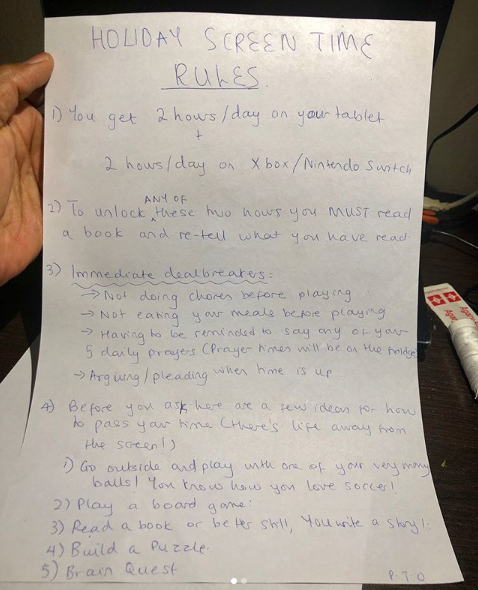 HOLIDAY SCREEN TIME
RULES.
1) You get 2 hours/day on your tablet
+
2 hours/day on Xbox/Nintendo Switch
ANY OF
2) To unlock ^ these two hours you MUST read
a book and re-tell what you have read.
3) Immediate dealbreakers:
→ Not doing chores before playing
→ Not eating your meals before playing
→ Having to be reminded to say any of your
5 daily prayers (Prayer times will be on the fridge)
→ Arguing/pleading when time is up
4) Before you ask here are a few ideas for how
to pass your time (there's life away from
the screen!)
1) Go outside and play with one of your very many
balls! You know how you love soccer!
2) Play a board game!
3) Read a book or better still, You write a story!
4) Build a Puzzle.
5) Brain Quest
P.T.O